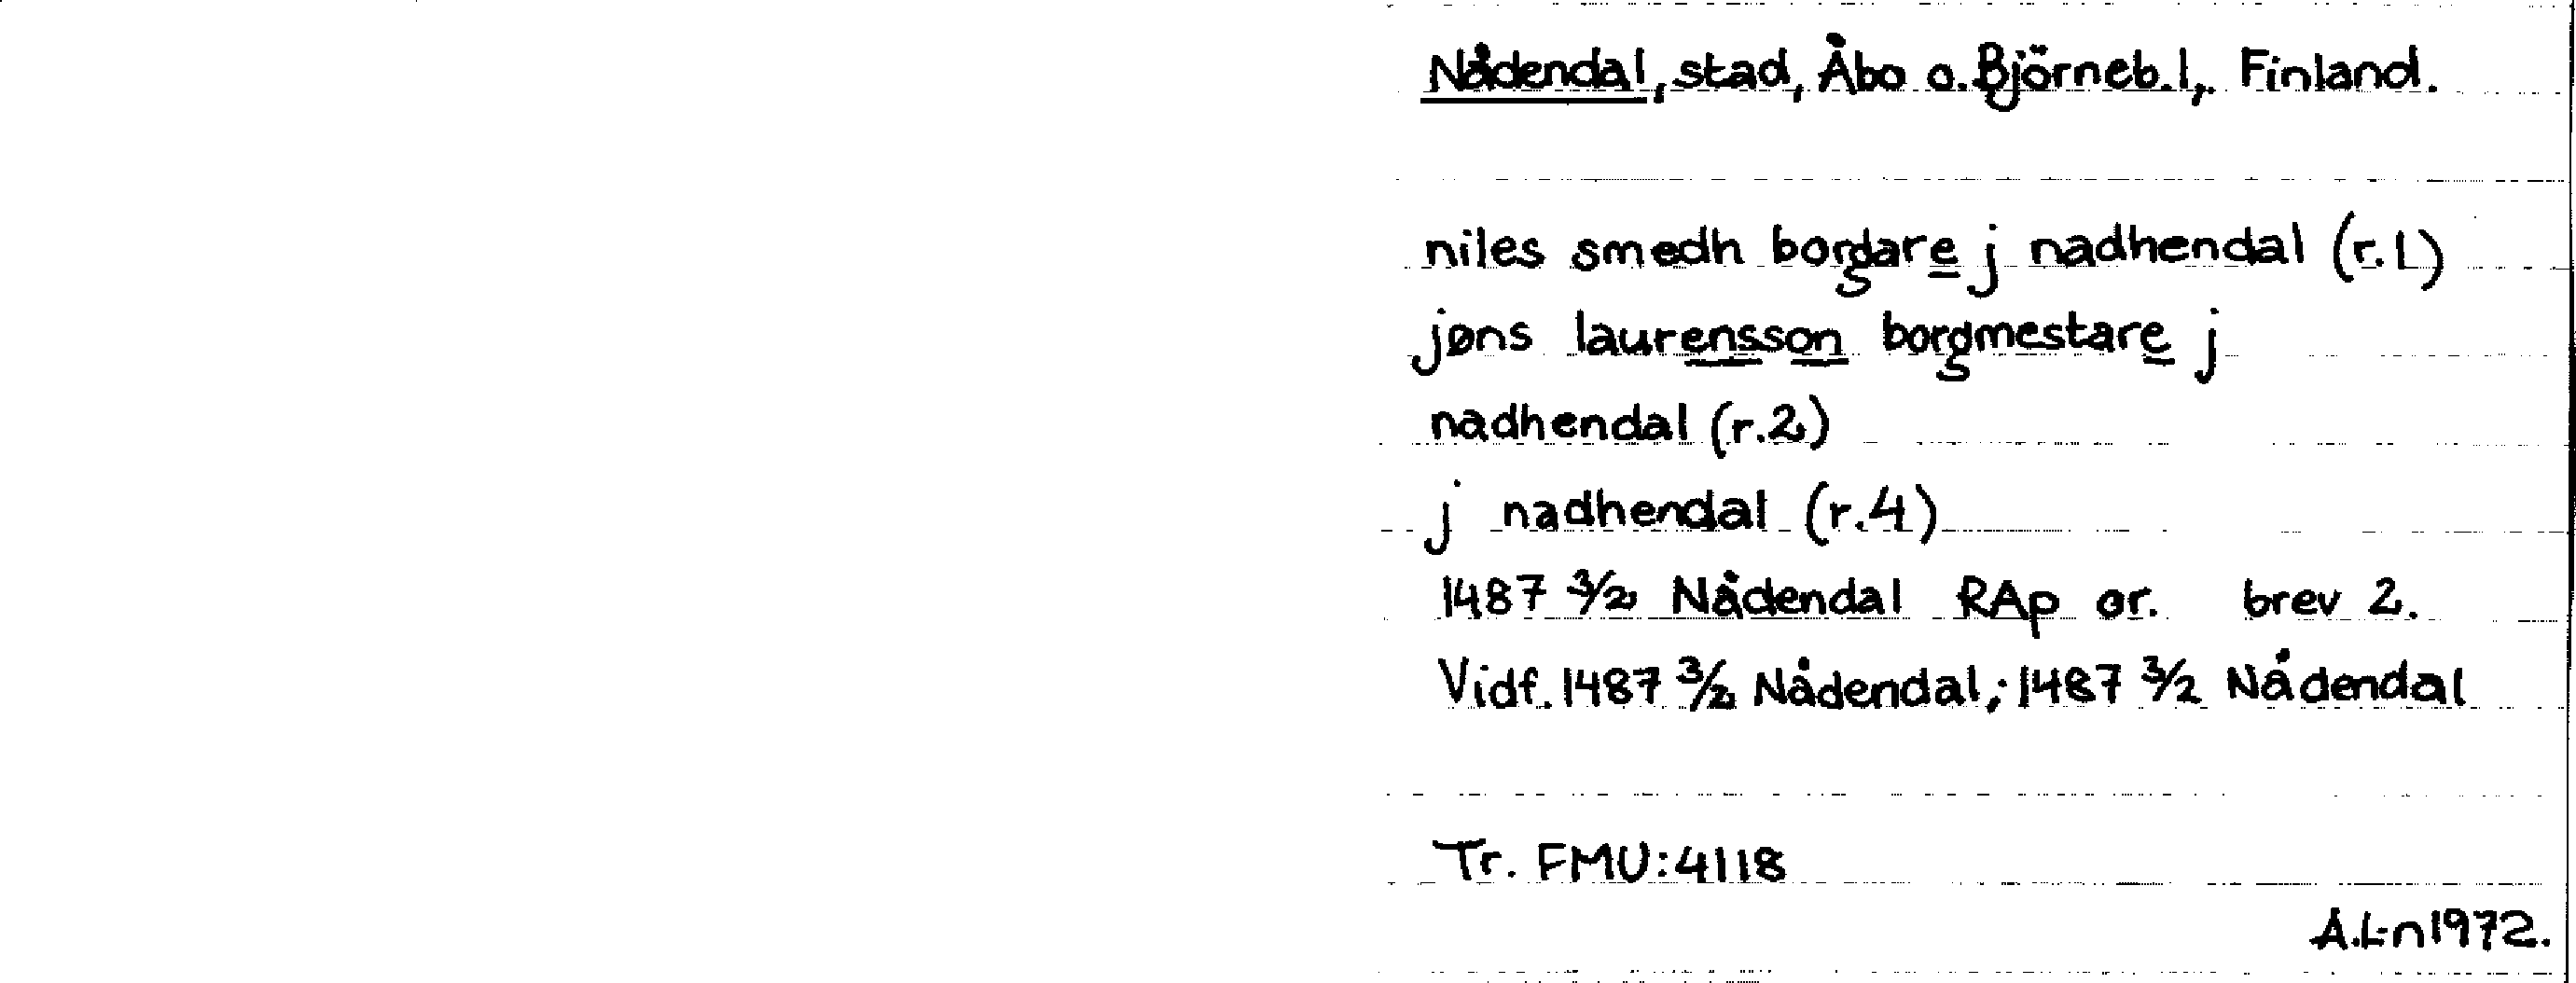 Nådendal, stad, Åbo o. Björneb.l., Finland.
niles smedh borgare j nadhendal (r.1)
jøns laurensson borgmestare j
nadhendal (r.2)
j nadhendal (r.4)
1487 3/2 Nådendal RAp or. brev 2.
Vidf. 1487 3/2 Nådendal; 1487 3/2 Nådendal
Tr. FMU: 4118
A.L-n 1972.